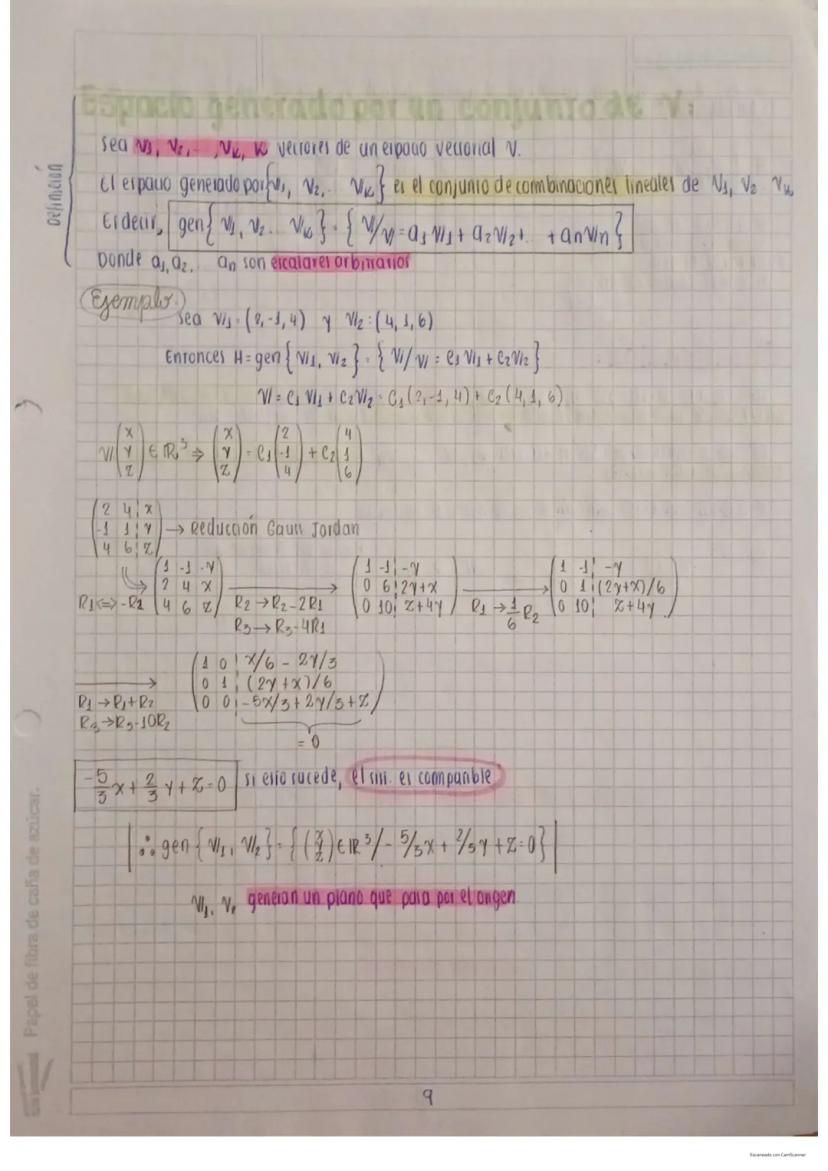 Espacio generado por un conjunto de V:
Definición
Sea v1, v2, ... , vk, k vectores de un espacio vectorial V.
El espacio generado por {v1, v2, ... vk} es el conjunto de combinaciones lineales de v1, v2 vk
Es decir, gen{v1, v2... vk} = {v/v = a1v1 + a2v2 + .. + anvn}
Donde a1, a2.. an son escalares arbitrarios
Ejemplo.
Sea v1 = (2, -1, 4) y v2 : (4, 1, 6)
Entonces H = gen{v1, v2} = {v/v = c1v1 + c2v2}
v = c1v1 + c2v2 = c1(2, -1, 4) + c2(4, 1, 6)
v(x y z) ∈ R³ ⇒ (x y z) = c1(2 -1 4) + c2(4 1 6)
(2 4 | x
-1 1 | y → Reducción Gauss Jordan
4 6 | z)
(1 -1 -y (1 -1 | -y (1 -1 | -y
2 4 x 0 6 | 2y+x 0 1 | (2y+x)/6
4 6 z) 0 10 | z+4y) 0 10 | z+4y)
R1 <=> -R2 R2 → R2 - 2R1 R1 → 1/6 R2
R3 → R3 - 4R1
(1 0 | x/6 - 2y/3
0 1 | (2y+x)/6
0 0 | -5x/3 + 2y/3 + z)
R1 → R1 + R2
R3 → R3 - 10R2
= 0
-5/3 x + 2/3 y + z = 0 si esto sucede, el sis. es compatible
∴ gen{v1, v2} = {(x y z) ∈ R³ / -5/3x + 2/3y + z = 0}
v1, v2 generan un plano que pasa por el origen
Papel de fibra de caña de azúcar.
9
Escaneado con CamScanner